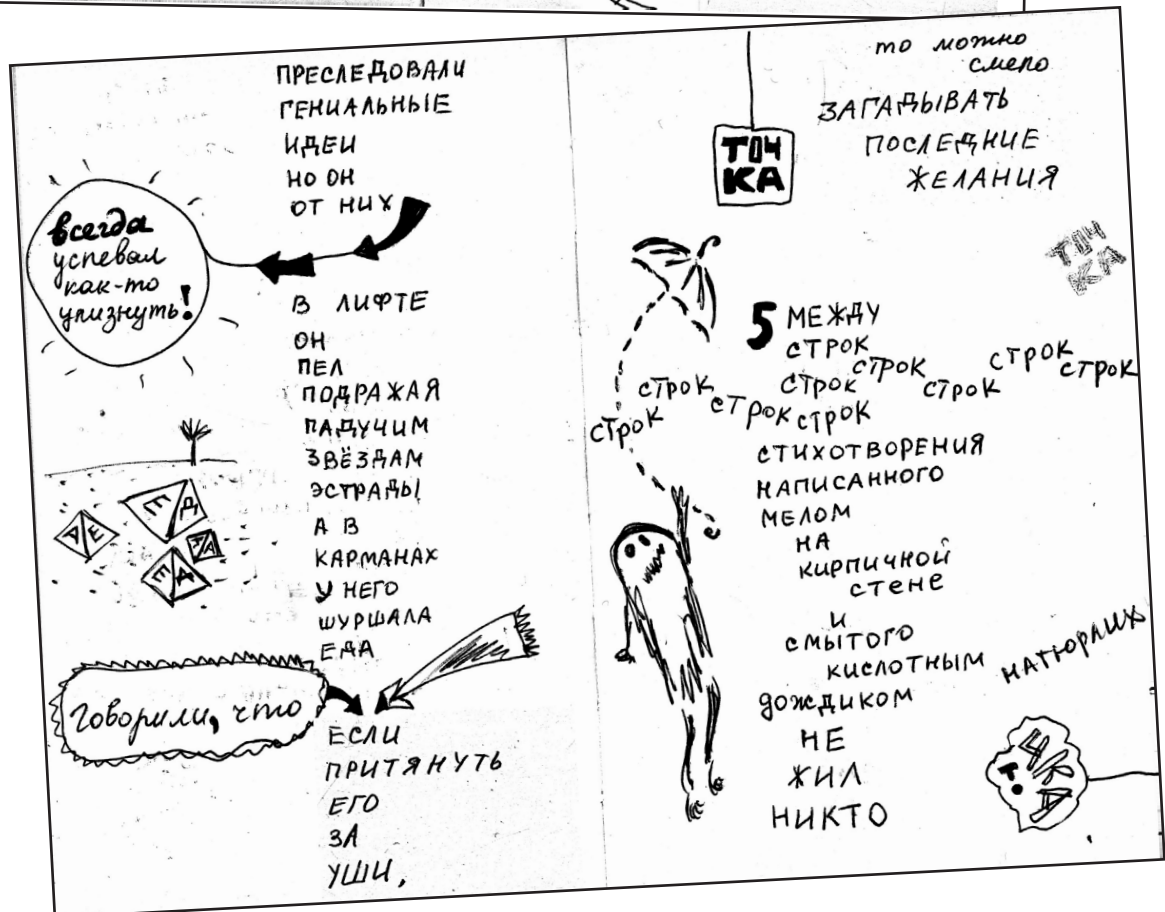 ПРЕСЛЕДОВАЛИ
ГЕНИАЛЬНЫЕ
ИДЕИ
НО ОН
ОТ НИХ
всегда
успевал
как-то
улизнуть!
В ЛИФТЕ
ОН
ПЕЛ
ПОДРАЖАЯ
ПАДУЧИМ
ЗВЁЗДАМ
ЭСТРАДЫ
А В
КАРМАНАХ
У НЕГО
ШУРШАЛА
ЕДА
Е Д
А Е
Д А
Е Д
говорили, что
ЕСЛИ
ПРИТЯНУТЬ
ЕГО
ЗА
УШИ,
то можно
смело
ЗАГАДЫВАТЬ
ПОСЛЕДНИЕ
ЖЕЛАНИЯ
ТОЧ
КА
ТОЧ
КА
5 МЕЖДУ
СТРОК
СТРОК
СТРОК
СТРОК
СТРОК
СТРОК
СТРОК
СТРОК
СТРОК
СТРОК
СТИХОТВОРЕНИЯ
НАПИСАННОГО
МЕЛОМ
НА
КИРПИЧНОЙ
СТЕНЕ
И
СМЫТОГО
КИСЛОТНЫМ
ДОЖДИКОМ
НЕ
ЖИЛ
НИКТО
НАТЮРЛИХ
ТО
ЧКА